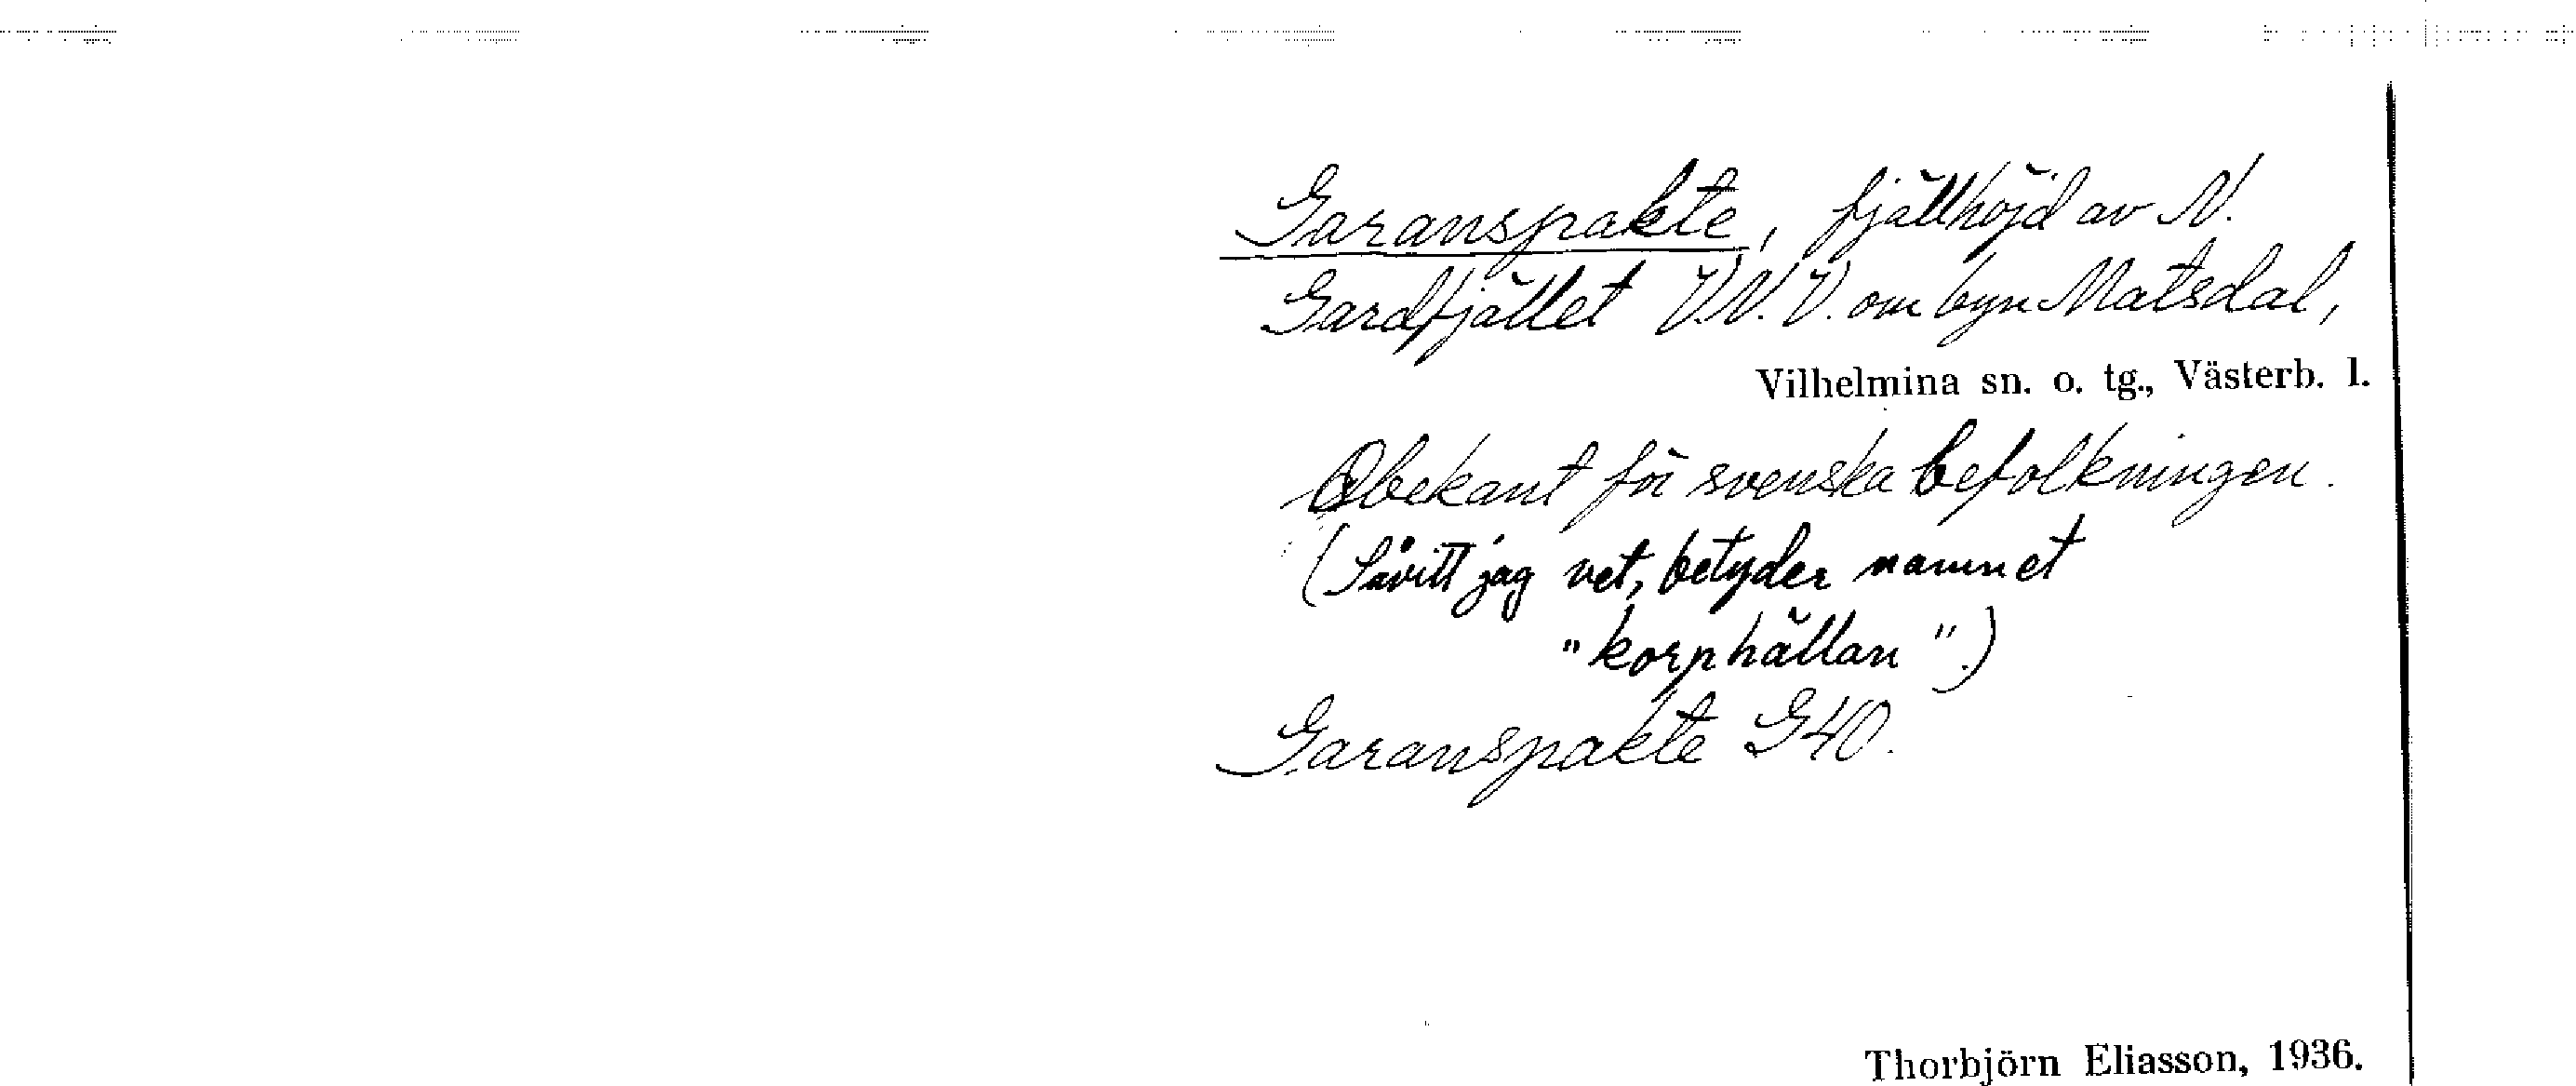 Garanspakte, fjällhöjd av N.
Gardfjället V.N.V. om byn Matsdal,
Vilhelmina sn. o. tg., Västerb. l.
Obekant för svenska befolkningen.
(Såvitt jag vet, betyder namnet
"korphällan".)
Garanspakte G40.
Thorbjörn Eliasson, 1936.